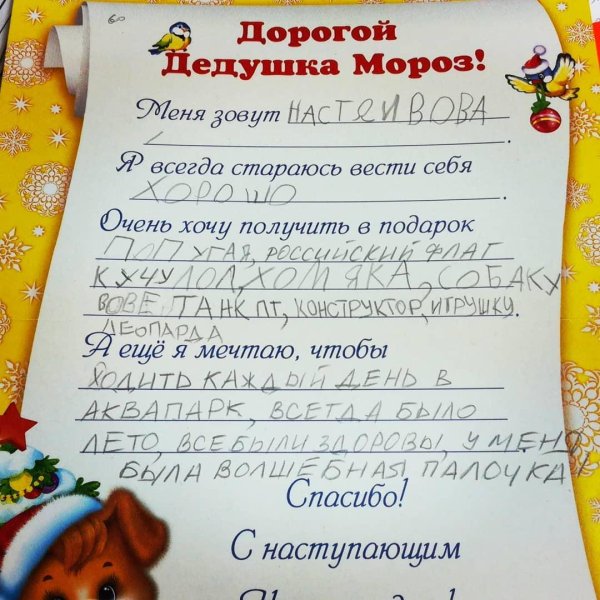 Дорогой
Дедушка Мороз!
Меня зовут НАСТЯ И ВОВА
Я всегда стараюсь вести себя
ХОРОШО.
Очень хочу получить в подарок
ПОПУГАЯ, РОССИЙСКИЙ ФЛАГ
КУЧУ ЛОЛ, ХОМЯКА, СОБАКУ
ВОВЕ ТАНК ПТ, КОНСТРУКТОР, ИГРУШКУ.
ЛЕОПАРДА
А ещё я мечтаю, чтобы
ХОДИТЬ КАЖДЫЙ ДЕНЬ В
АКВАПАРК, ВСЕГДА БЫЛО
ЛЕТО, ВСЕ БЫЛИ ЗДОРОВЫ, У МЕНЯ
БЫЛА ВОЛШЕБНАЯ ПАЛОЧКА
Спасибо!
С наступающим